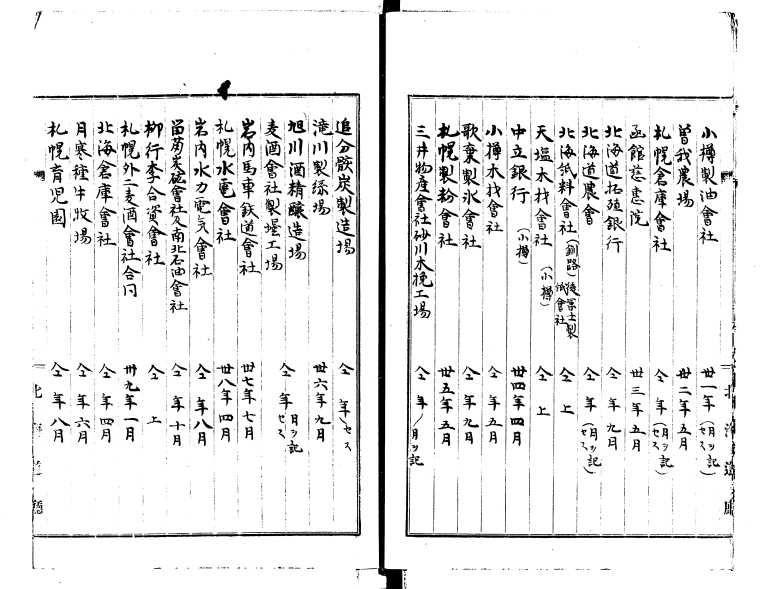 小樽製油會社 卅一年(月ヲ記セス)
曽我農場 卅二年五月
札幌倉庫會社 仝年(月ヲ記セス)
函館慈恵院 卅三年五月
北海道拓殖銀行 仝年九月
北海道農會 仝年(月ヲ記セス)
北海紙料會社(釧路)後冨士製紙會社 仝上
天塩木材會社(小樽) 仝上
中立銀行(小樽) 卅四年四月
小樽木材會社 仝年五月
歌棄製氷會社 仝年九月
札幌製粉會社 卅五年五月
三井物産會社砂川木挽工場 仝年月ヲ記
追分骸炭製造場 仝年セス
滝川製綿場 卅六年九月
旭川酒精醸造場 仝年月ヲ記セス
麦酒會社製壜工場
岩内馬車鉄道會社 卅七年七月
札幌水電會社 卅八年四月
岩内水力電気會社 仝年八月
炭砿會社及南北石油會社 仝年十月
柳行李合資會社 仝上
札幌外二麦酒會社合同 卅九年一月
北海倉庫會社 仝年四月
月寒種牛牧場 仝年六月
札幌育児園 仝年八月